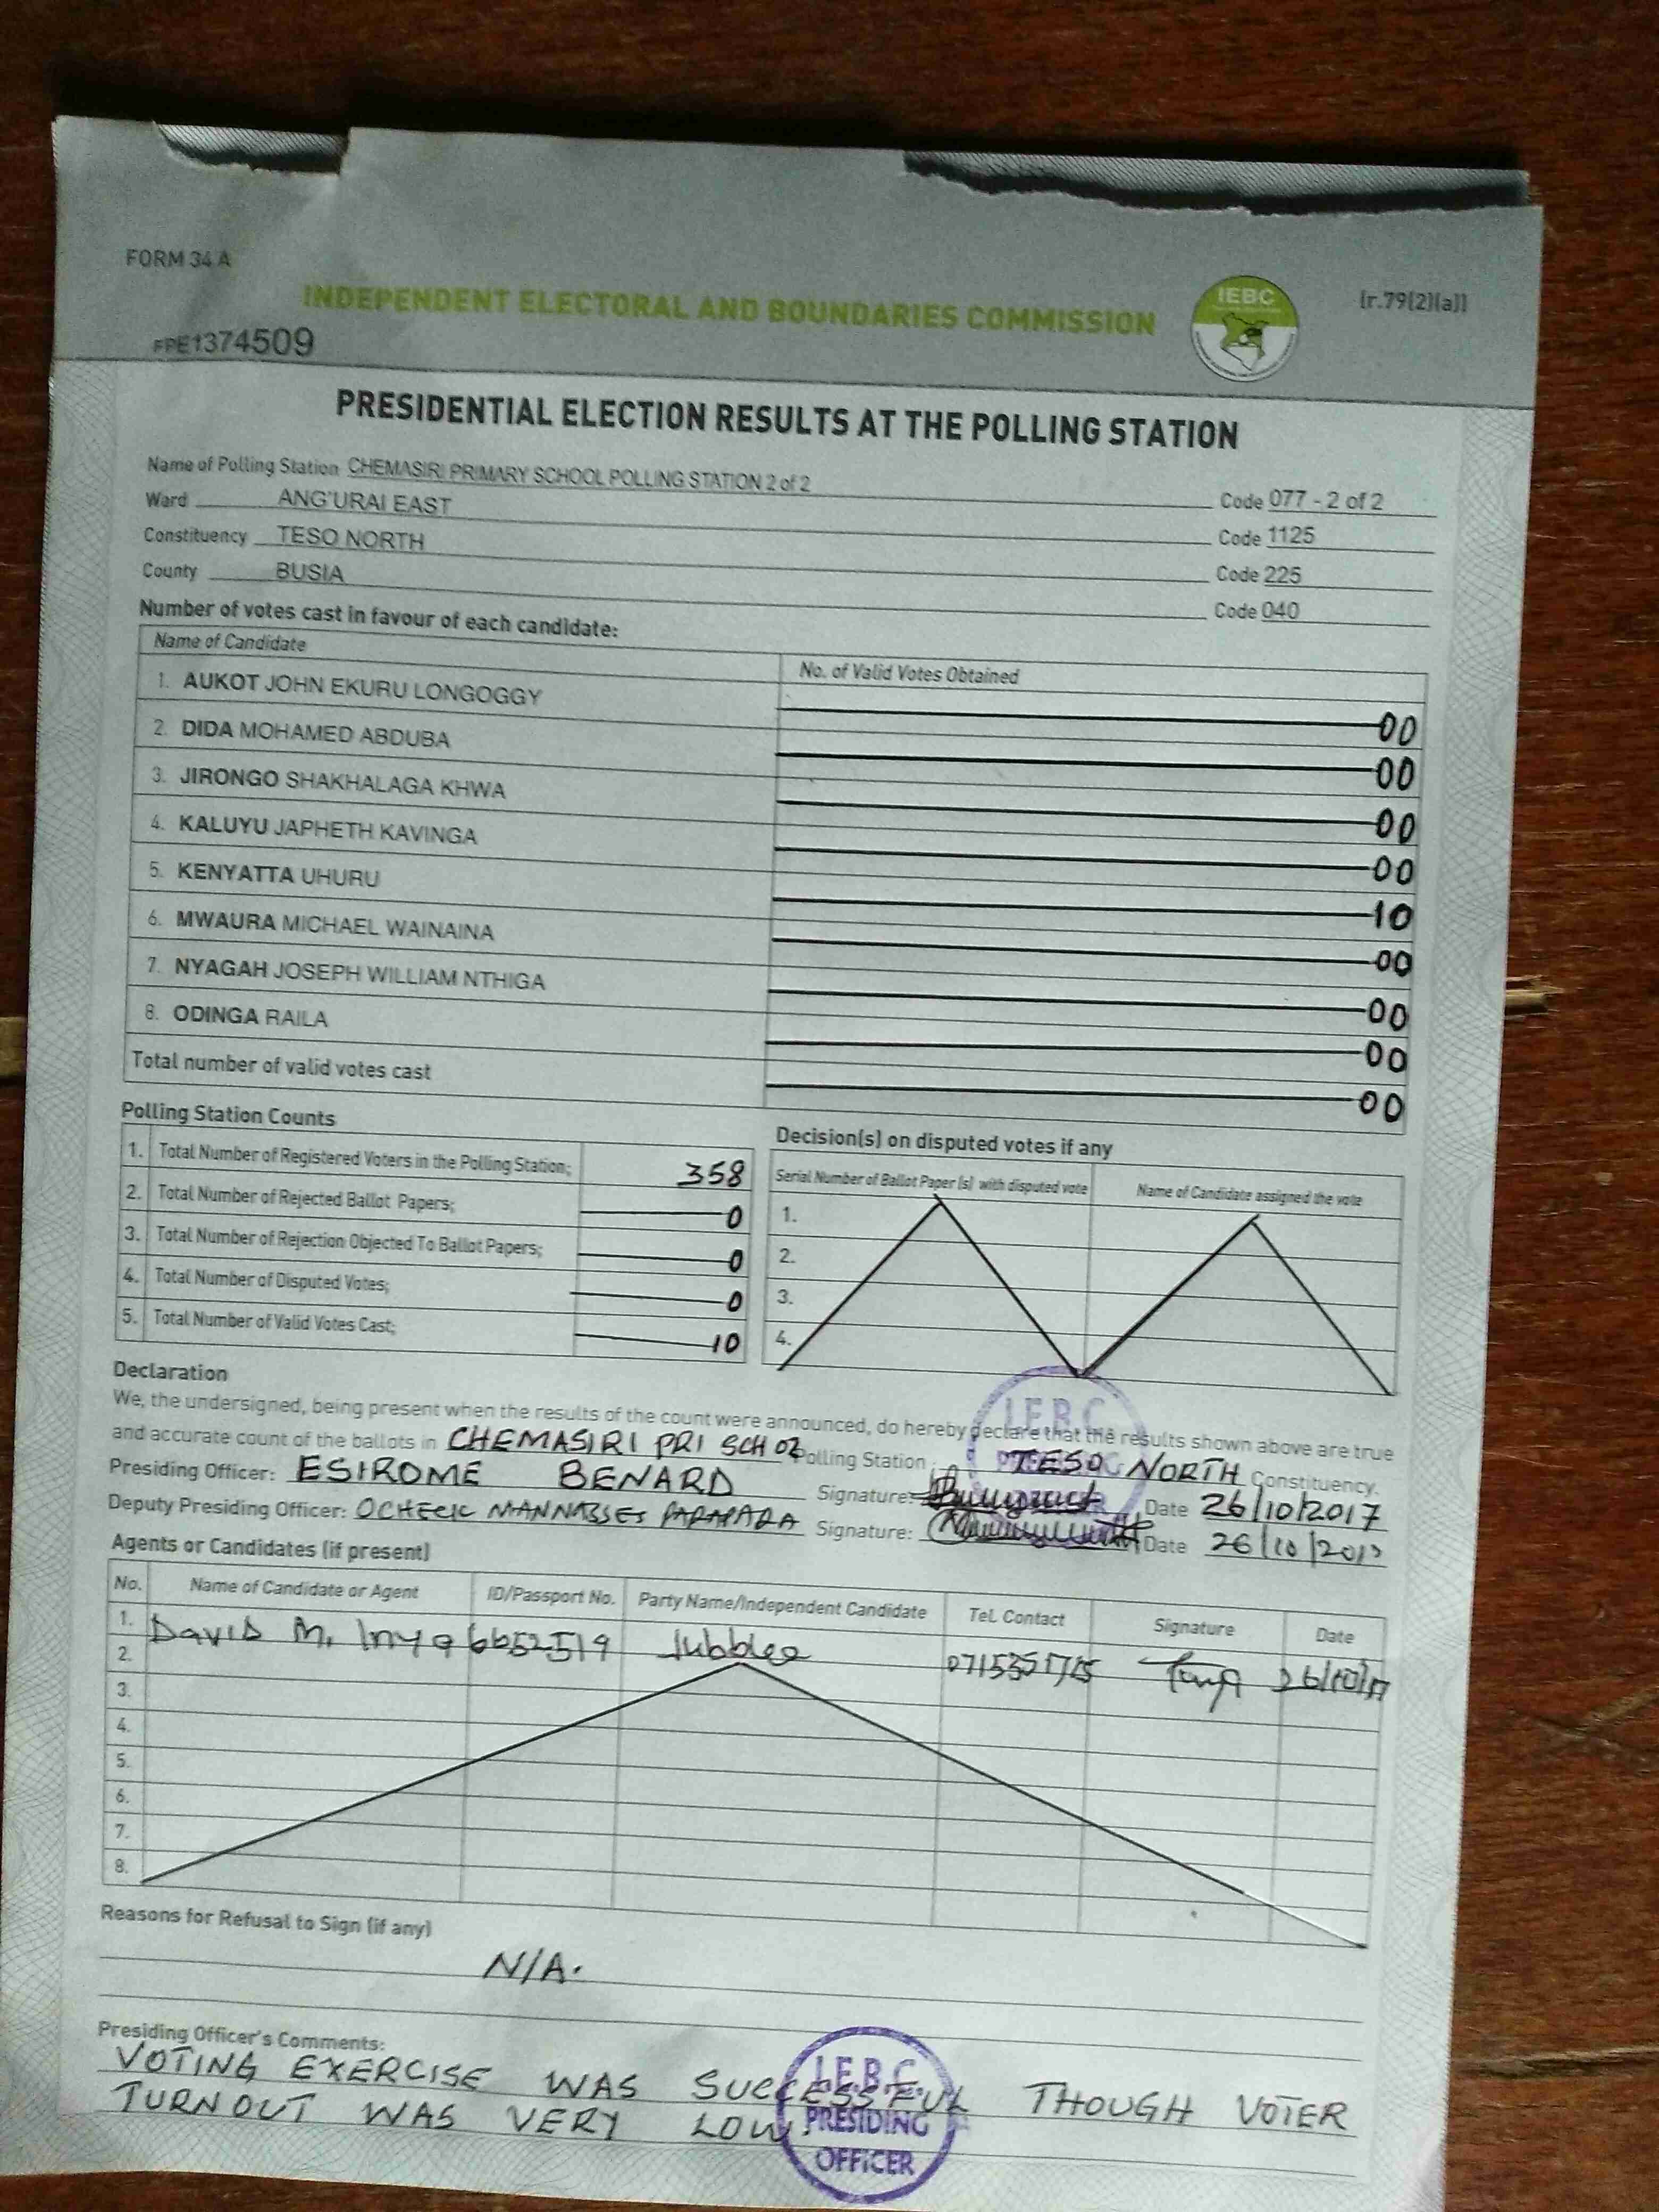 FORM 34 A
INDEPENDENT ELECTORAL AND BOUNDARIES COMMISSION
IEBC
[r.79(2)(a)]
FPE1374509
PRESIDENTIAL ELECTION RESULTS AT THE POLLING STATION
Name of Polling Station CHEMASIRI PRIMARY SCHOOL POLLING STATION 2 of 2 Code 077 - 2 of 2
Ward ANG'URAI EAST Code 1125
Constituency TESO NORTH Code 225
County BUSIA Code 040
Number of votes cast in favour of each candidate:
Name of Candidate No. of Valid Votes Obtained
1. AUKOT JOHN EKURU LONGOGGY 00
2. DIDA MOHAMED ABDUBA 00
3. JIRONGO SHAKHALAGA KHWA 00
4. KALUYU JAPHETH KAVINGA 00
5. KENYATTA UHURU 10
6. MWAURA MICHAEL WAINAINA 00
7. NYAGAH JOSEPH WILLIAM NTHIGA 00
8. ODINGA RAILA 00
Total number of valid votes cast 00
Polling Station Counts
1. Total Number of Registered Voters in the Polling Station; 358
2. Total Number of Rejected Ballot Papers; 0
3. Total Number of Rejection Objected To Ballot Papers; 0
4. Total Number of Disputed Votes; 0
5. Total Number of Valid Votes Cast; 10
Decision(s) on disputed votes if any
Serial Number of Ballot Paper (s) with disputed vote Name of Candidate assigned the vote
1.
2.
3.
4.
Declaration
We, the undersigned, being present when the results of the count were announced, do hereby declare that the results shown above are true
and accurate count of the ballots in CHEMASIRI PRI SCH 02 Polling Station TESO NORTH Constituency.
I.E.B.C.
Presiding Officer: ESIROME BENARD Signature: Date 26/10/2017
Deputy Presiding Officer: OCHECK MANNASSES PARAPARA Signature: Date 26/10/2017
Agents or Candidates (if present)
No. Name of Candidate or Agent ID/Passport No. Party Name/Independent Candidate Tel. Contact Signature Date
1. David M. Inya 6652519 Jubblee 26/10/17
2.
3.
4.
5.
6.
7.
8.
Reasons for Refusal to Sign (if any)
N/A.
Presiding Officer's Comments:
VOTING EXERCISE WAS SUCCESSFUL THOUGH VOTER
TURNOUT WAS VERY LOW.
I.E.B.C.
PRESIDING
OFFICER